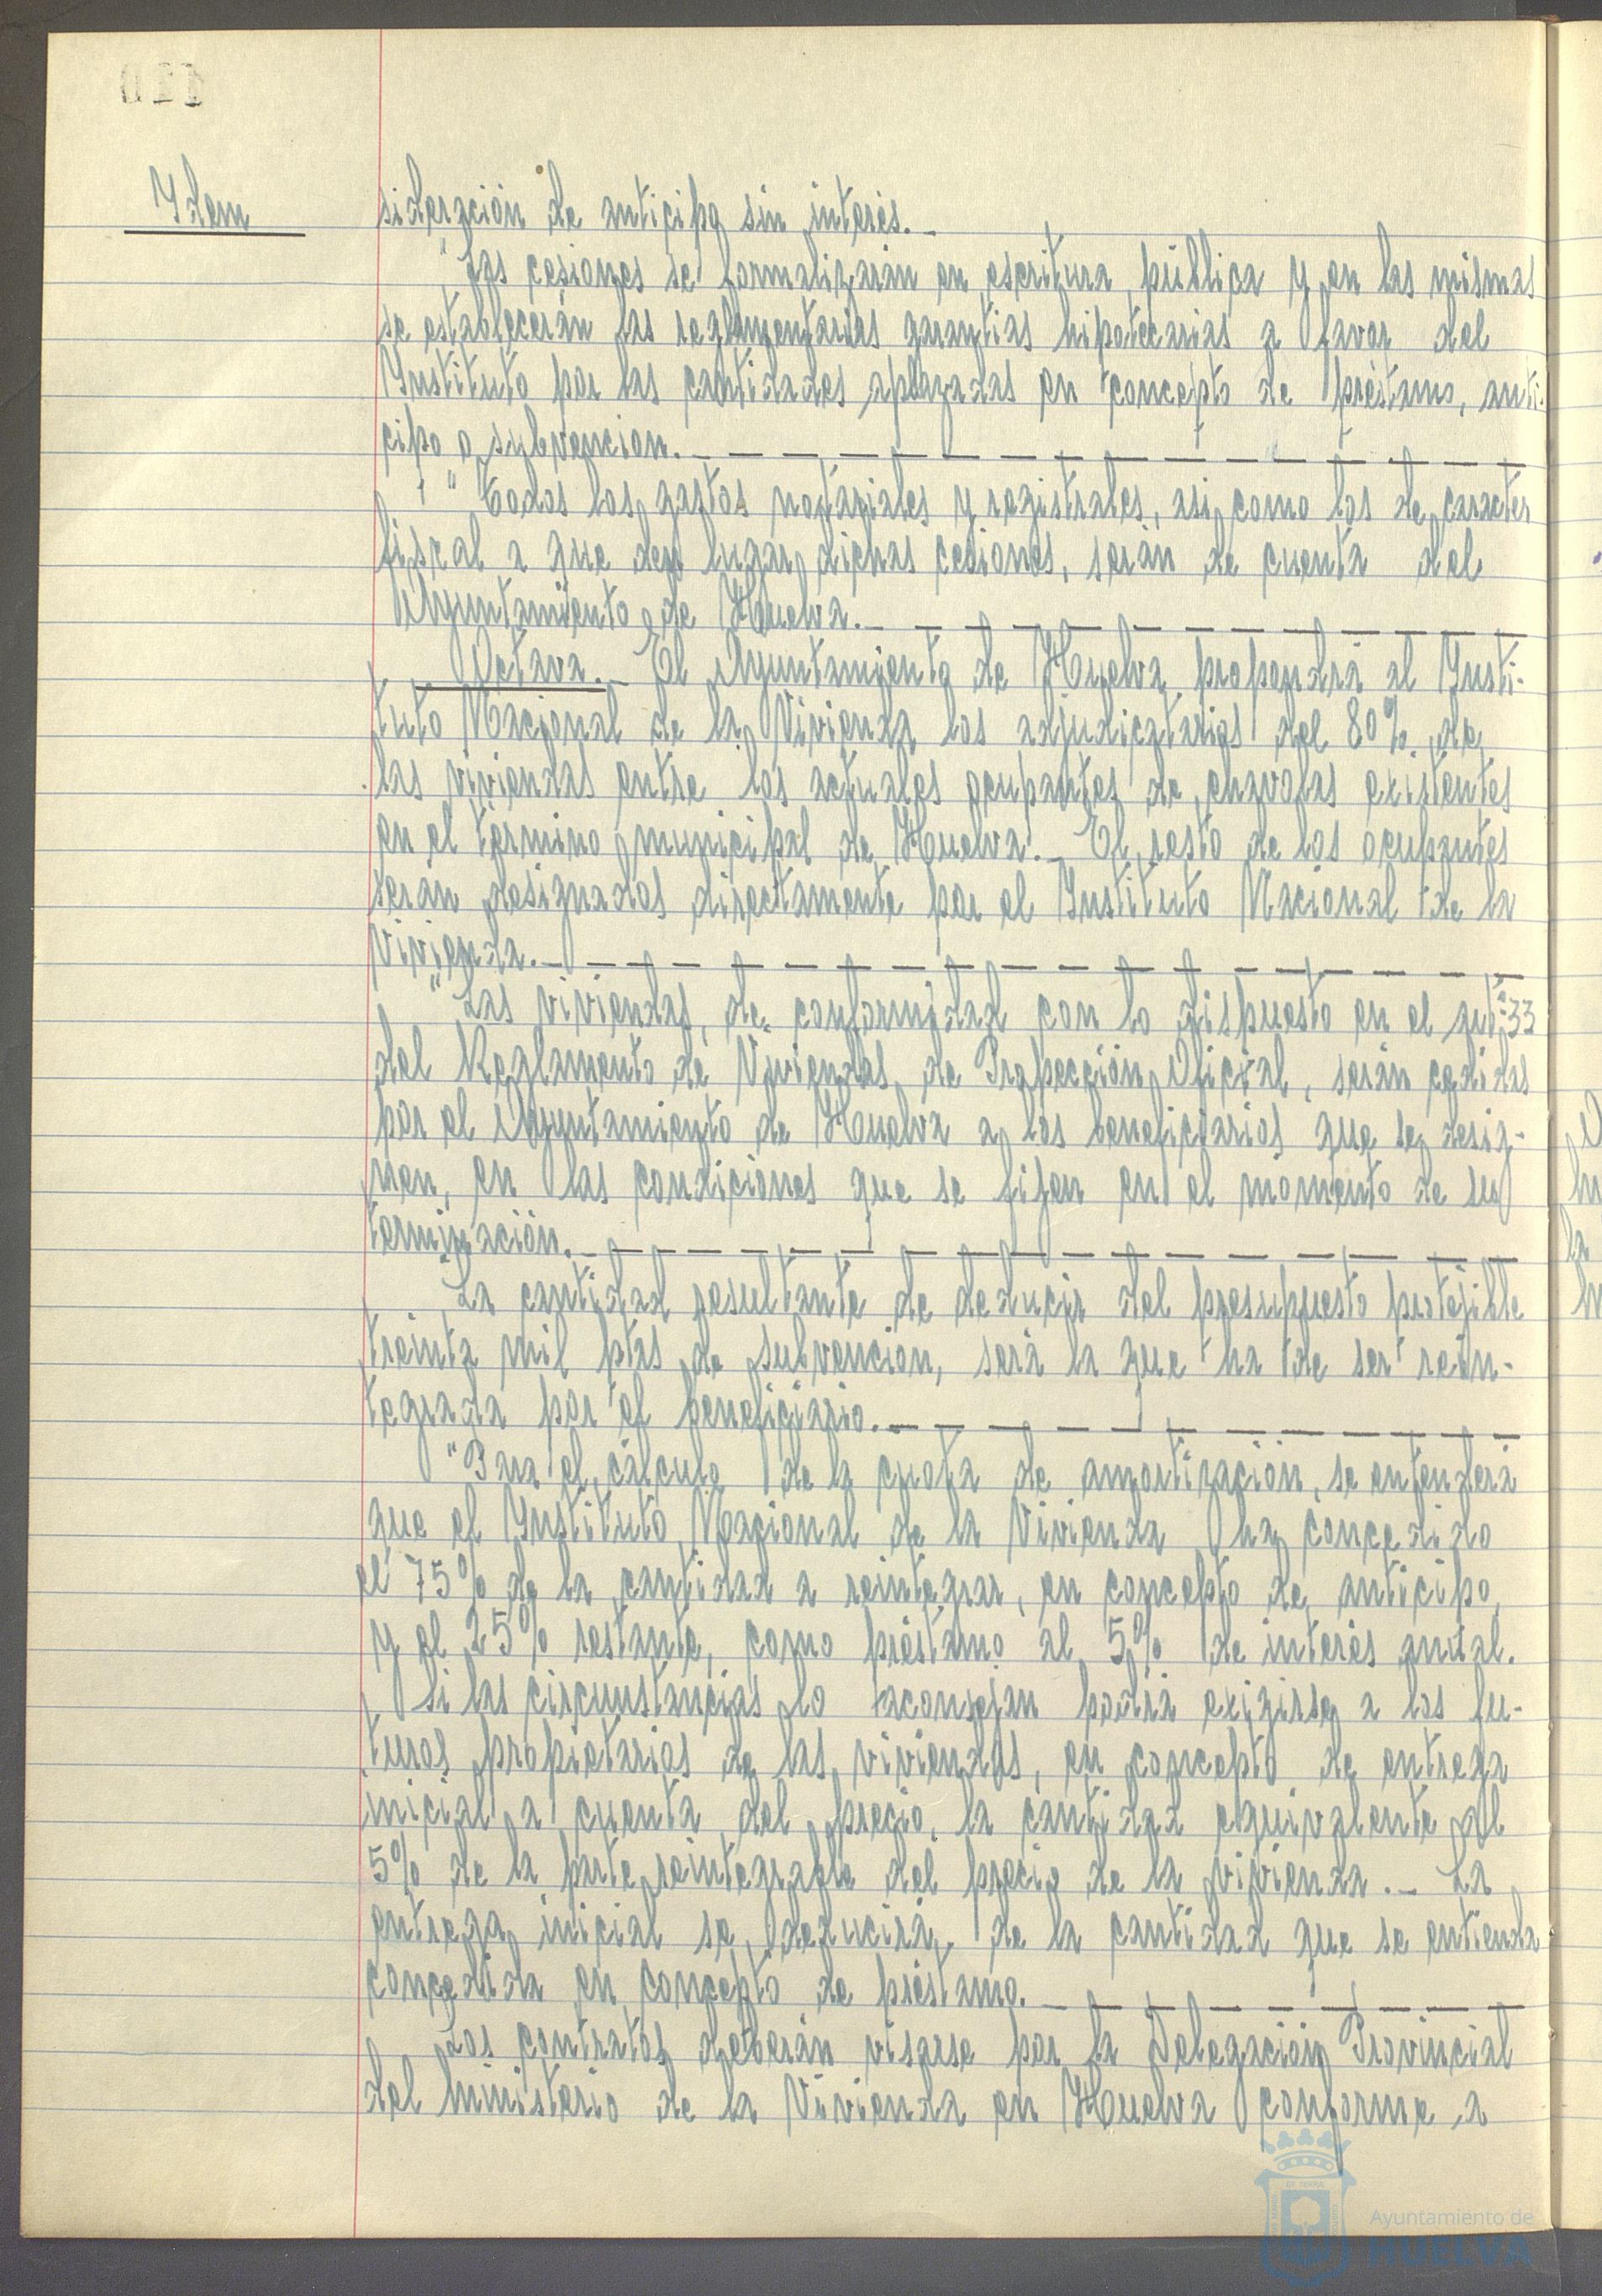 Idem
sideración de anticipo sin interés.-
"Las cesiones se formalizarán en escritura pública y en las mismas
se establecerán las reglamentarias garantias hipotecarias a favor del
Instituto por las cantidades aplazadas en concepto de préstamo, anti-
cipo o subvencion.
" Todos los gastos notariales y registrales, asi como los de caracter
fiscal a que den lugar dichas cesiones, serán de cuenta del
Ayuntamiento de Huelva.
Octava.- El Ayuntamiento de Huelva propondrá al Insti-
tuto Nacional de la Vivienda los adjudicatarios del 80% de
las viviendas entre los actuales ocupantes de chavolas existentes
en el termino municipal de Huelva.- El resto de los ocupantes
serán designados directamente por el Instituto Nacional de la
Vivienda.
"Las viviendas, de conformidad con lo dispuesto en el art: 33
del Reglamento de Viviendas de Protección Oficial, serán cedidas
por el Ayuntamiento de Huelva a los beneficiarios que se desig-
nen, en las condiciones que se fijen en el momento de su
terminación.
"La cantidad resultante de deducir del presupuesto protegible
treinta mil ptas de subvencion, será la que ha de ser rein-
tegrada por el beneficiario.
"Para el cálculo de la cuota de amortización, se entenderá
que el Instituto Nacional de la Vivienda ha concedido
el 75% de la cantidad a reintegrar, en concepto de anticipo,
y el 25% restante, como préstamo al 5% de interés anual.
Si las circunstancias lo aconsejan podrá exigirse a los fu-
turos propietarios de las viviendas, en concepto de entrega
inicial a cuenta del precio, la cantidad equivalente al
5% de la parte reintegrable del precio de la vivienda.- La
entrega inicial se deducirá de la cantidad que se entienda
concedida en concepto de préstamo.
Los contratos deberán visarse por la Delegación Provincial
del Ministerio de la Vivienda en Huelva conforme a
Ayuntamiento de
HUELVA